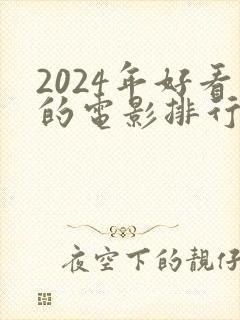 2024年好看
的電影排行
夜空下的靚仔